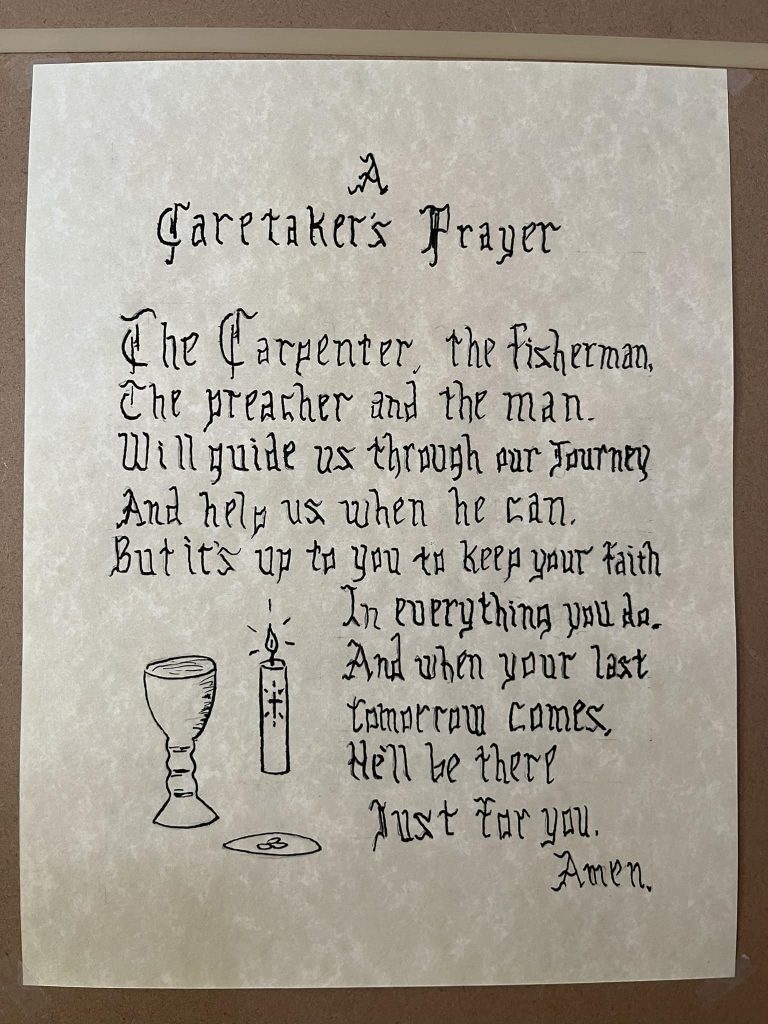 A
Caretaker's Prayer
The Carpenter, the fisherman,
The preacher and the man.
Will guide us through our Journey
And help us when he can.
But it's up to you to keep your faith
In everything you do.
And when your last
tomorrow comes,
He'll be there
Just for you.
Amen.